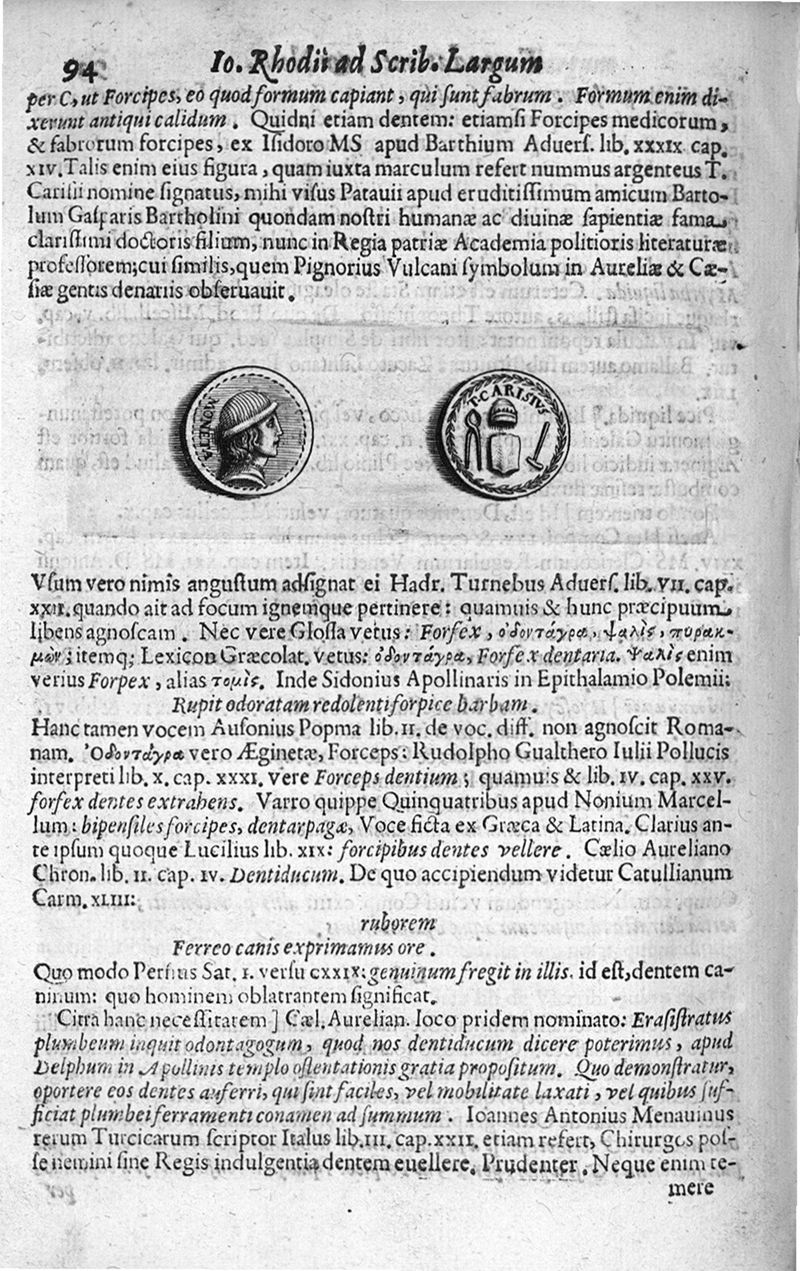 94 Io. Rhodii ad Scrib. Largum
per C, ut Forcipes, eo quod formum capiant, qui sunt fabrum. Formum enim di-
xerunt antiqui calidum. Quidni etiam dentem: etiamsi Forcipes medicorum,
& fabrorum forcipes, ex Isidoro MS apud Barthium Aduers. lib. xxxix cap.
xiv. Talis enim eius figura, quam iuxta marculum refert nummus argenteus T.
Carisii nomine signatus, mihi visus Patauii apud eruditissimum amicum Barto-
lum Gasparis Bartholini quondam nostri humanæ ac diuinæ sapientiæ fama
clarissimi doctoris filium, nunc in Regia patriæ Academia politioris literaturæ
professorem; cui similis, quem Pignorius Vulcani symbolum in Aureliæ & Cæ-
siæ gentis denariis obseruauit.
MONETA
T. CARISIVS
Vsum vero nimis angustum adsignat ei Hadr. Turnebus Aduers. lib. VII. cap.
xxII. quando ait ad focum ignemque pertinere: quamuis & hunc præcipuum
libens agnoscam. Nec vere Glossa vetus: Forfex, ὀδοντάγρα, ψαλὶς, πυρακ-
μὼν; itemq; Lexicon Græcolat. vetus: ὀδοντάγρα, Forfex dentaria. Ψαλὶς enim
verius Forpex, alias τομὶς. Inde Sidonius Apollinaris in Epithalamio Polemii:
Rupit odoratam redolenti forpice barbam.
Hanc tamen vocem Ausonius Popma lib. II. de voc. diff. non agnoscit Roma-
nam. Ὀδοντάγρα vero Æginetæ, Forceps: Rudolpho Gualthero Iulii Pollucis
interpreti lib. x. cap. xxxI. vere Forceps dentium; quamuis & lib. IV. cap. xxv.
forfex dentes extrahens. Varro quippe Quinquatribus apud Nonium Marcel-
lum: bipensiles forcipes, dentarpagæ, Voce ficta ex Græca & Latina. Clarius an-
te ipsum quoque Lucilius lib. xIx: forcipibus dentes vellere. Cælio Aureliano
Chron. lib. II. cap. IV. Dentiducum. De quo accipiendum videtur Catullianum
Carm. XLIII:
ruborem
Ferreo canis exprimamus ore.
Quo modo Persius Sat. I. versu cxxIx: genuinum fregit in illis. id est, dentem ca-
ninum: quo hominem oblatrantem significat.
Citra hanc necessitatem] Cæl. Aurelian. loco pridem nominato: Erasistratus
plumbeum inquit odontagogum, quod nos dentiducum dicere poterimus, apud
Delphum in Apollinis templo ostentationis gratia propositum. Quo demonstratur,
oportere eos dentes auferri, qui sint faciles, vel mobilitate laxati, vel quibus suf-
ficiat plumbei ferramenti conamen ad summum. Ioannes Antonius Menauinus
rerum Turcicarum scriptor Italus lib. III. cap. xxII. etiam refert, Chirurgos pos-
se nemini sine Regis indulgentia dentem euellere. Prudenter. Neque enim te-
mere